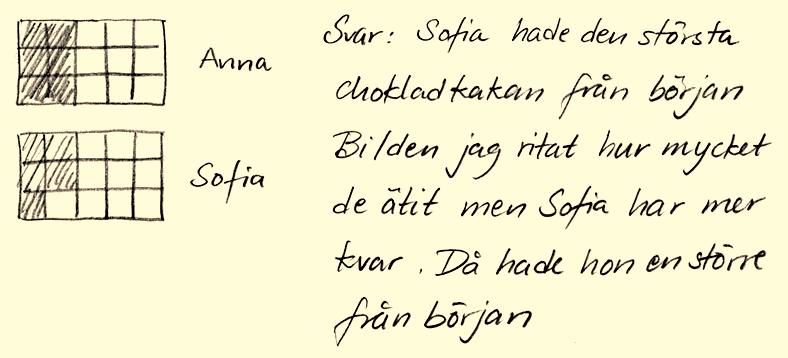 Anna
Sofia
Svar: Sofia hade den största
chokladkakan från början
Bilden jag ritat hur mycket
de ätit men Sofia har mer
kvar. Då hade hon en större
från början